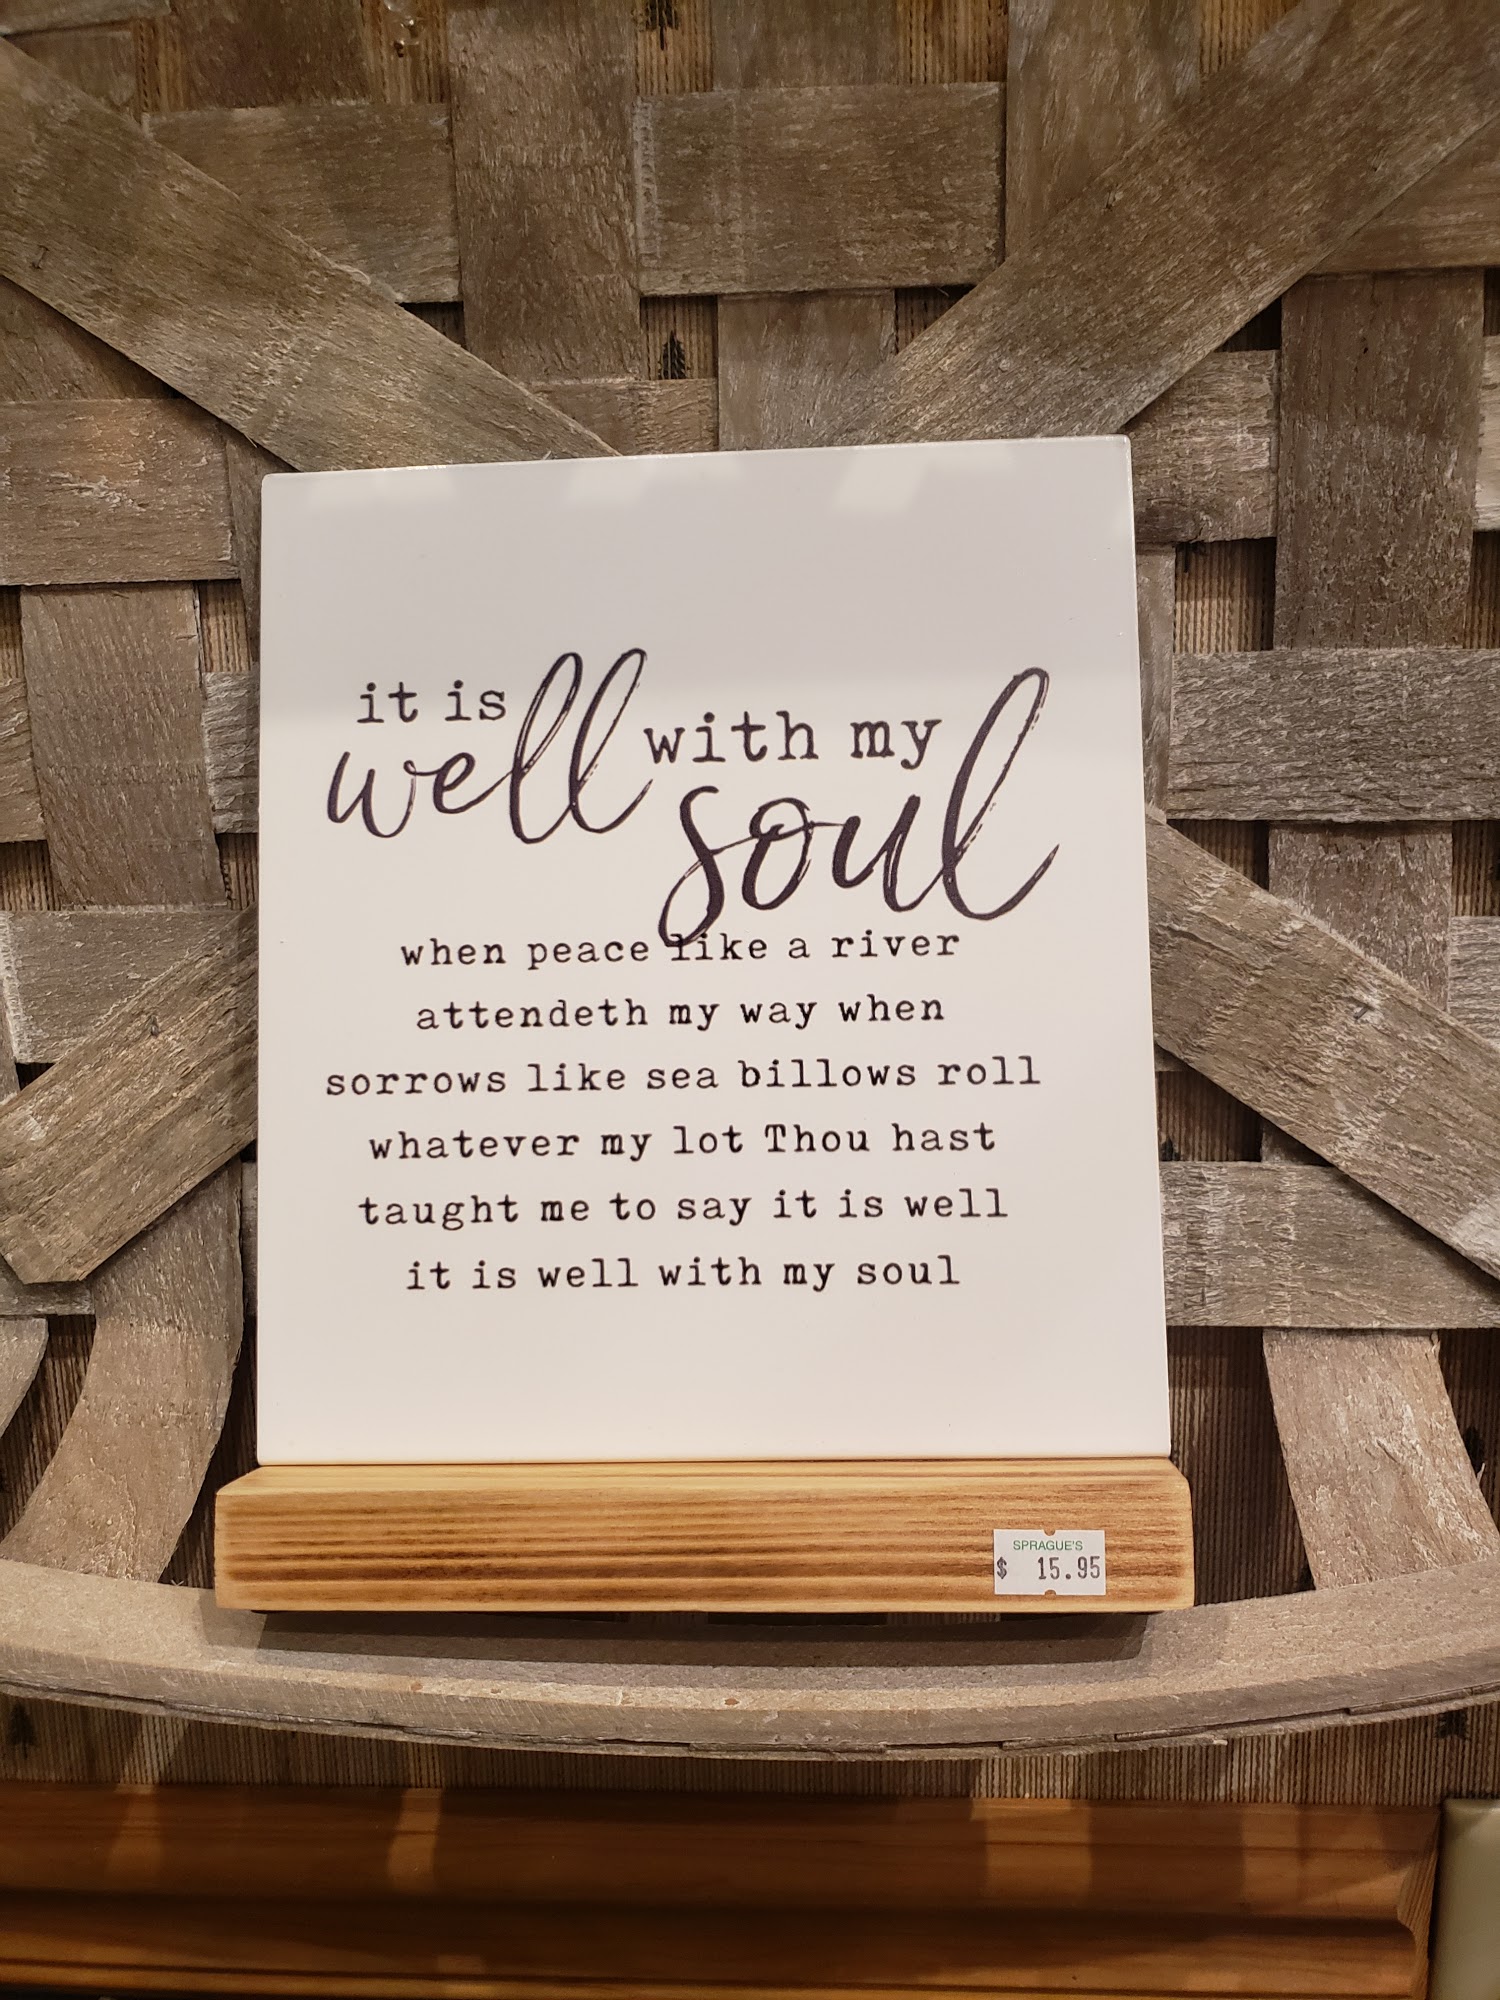 it is well with my soul
when peace like a river
attendeth my way when
sorrows like sea billows roll
whatever my lot Thou hast
taught me to say it is well
it is well with my soul
SPRAGUE'S
$ 15.95